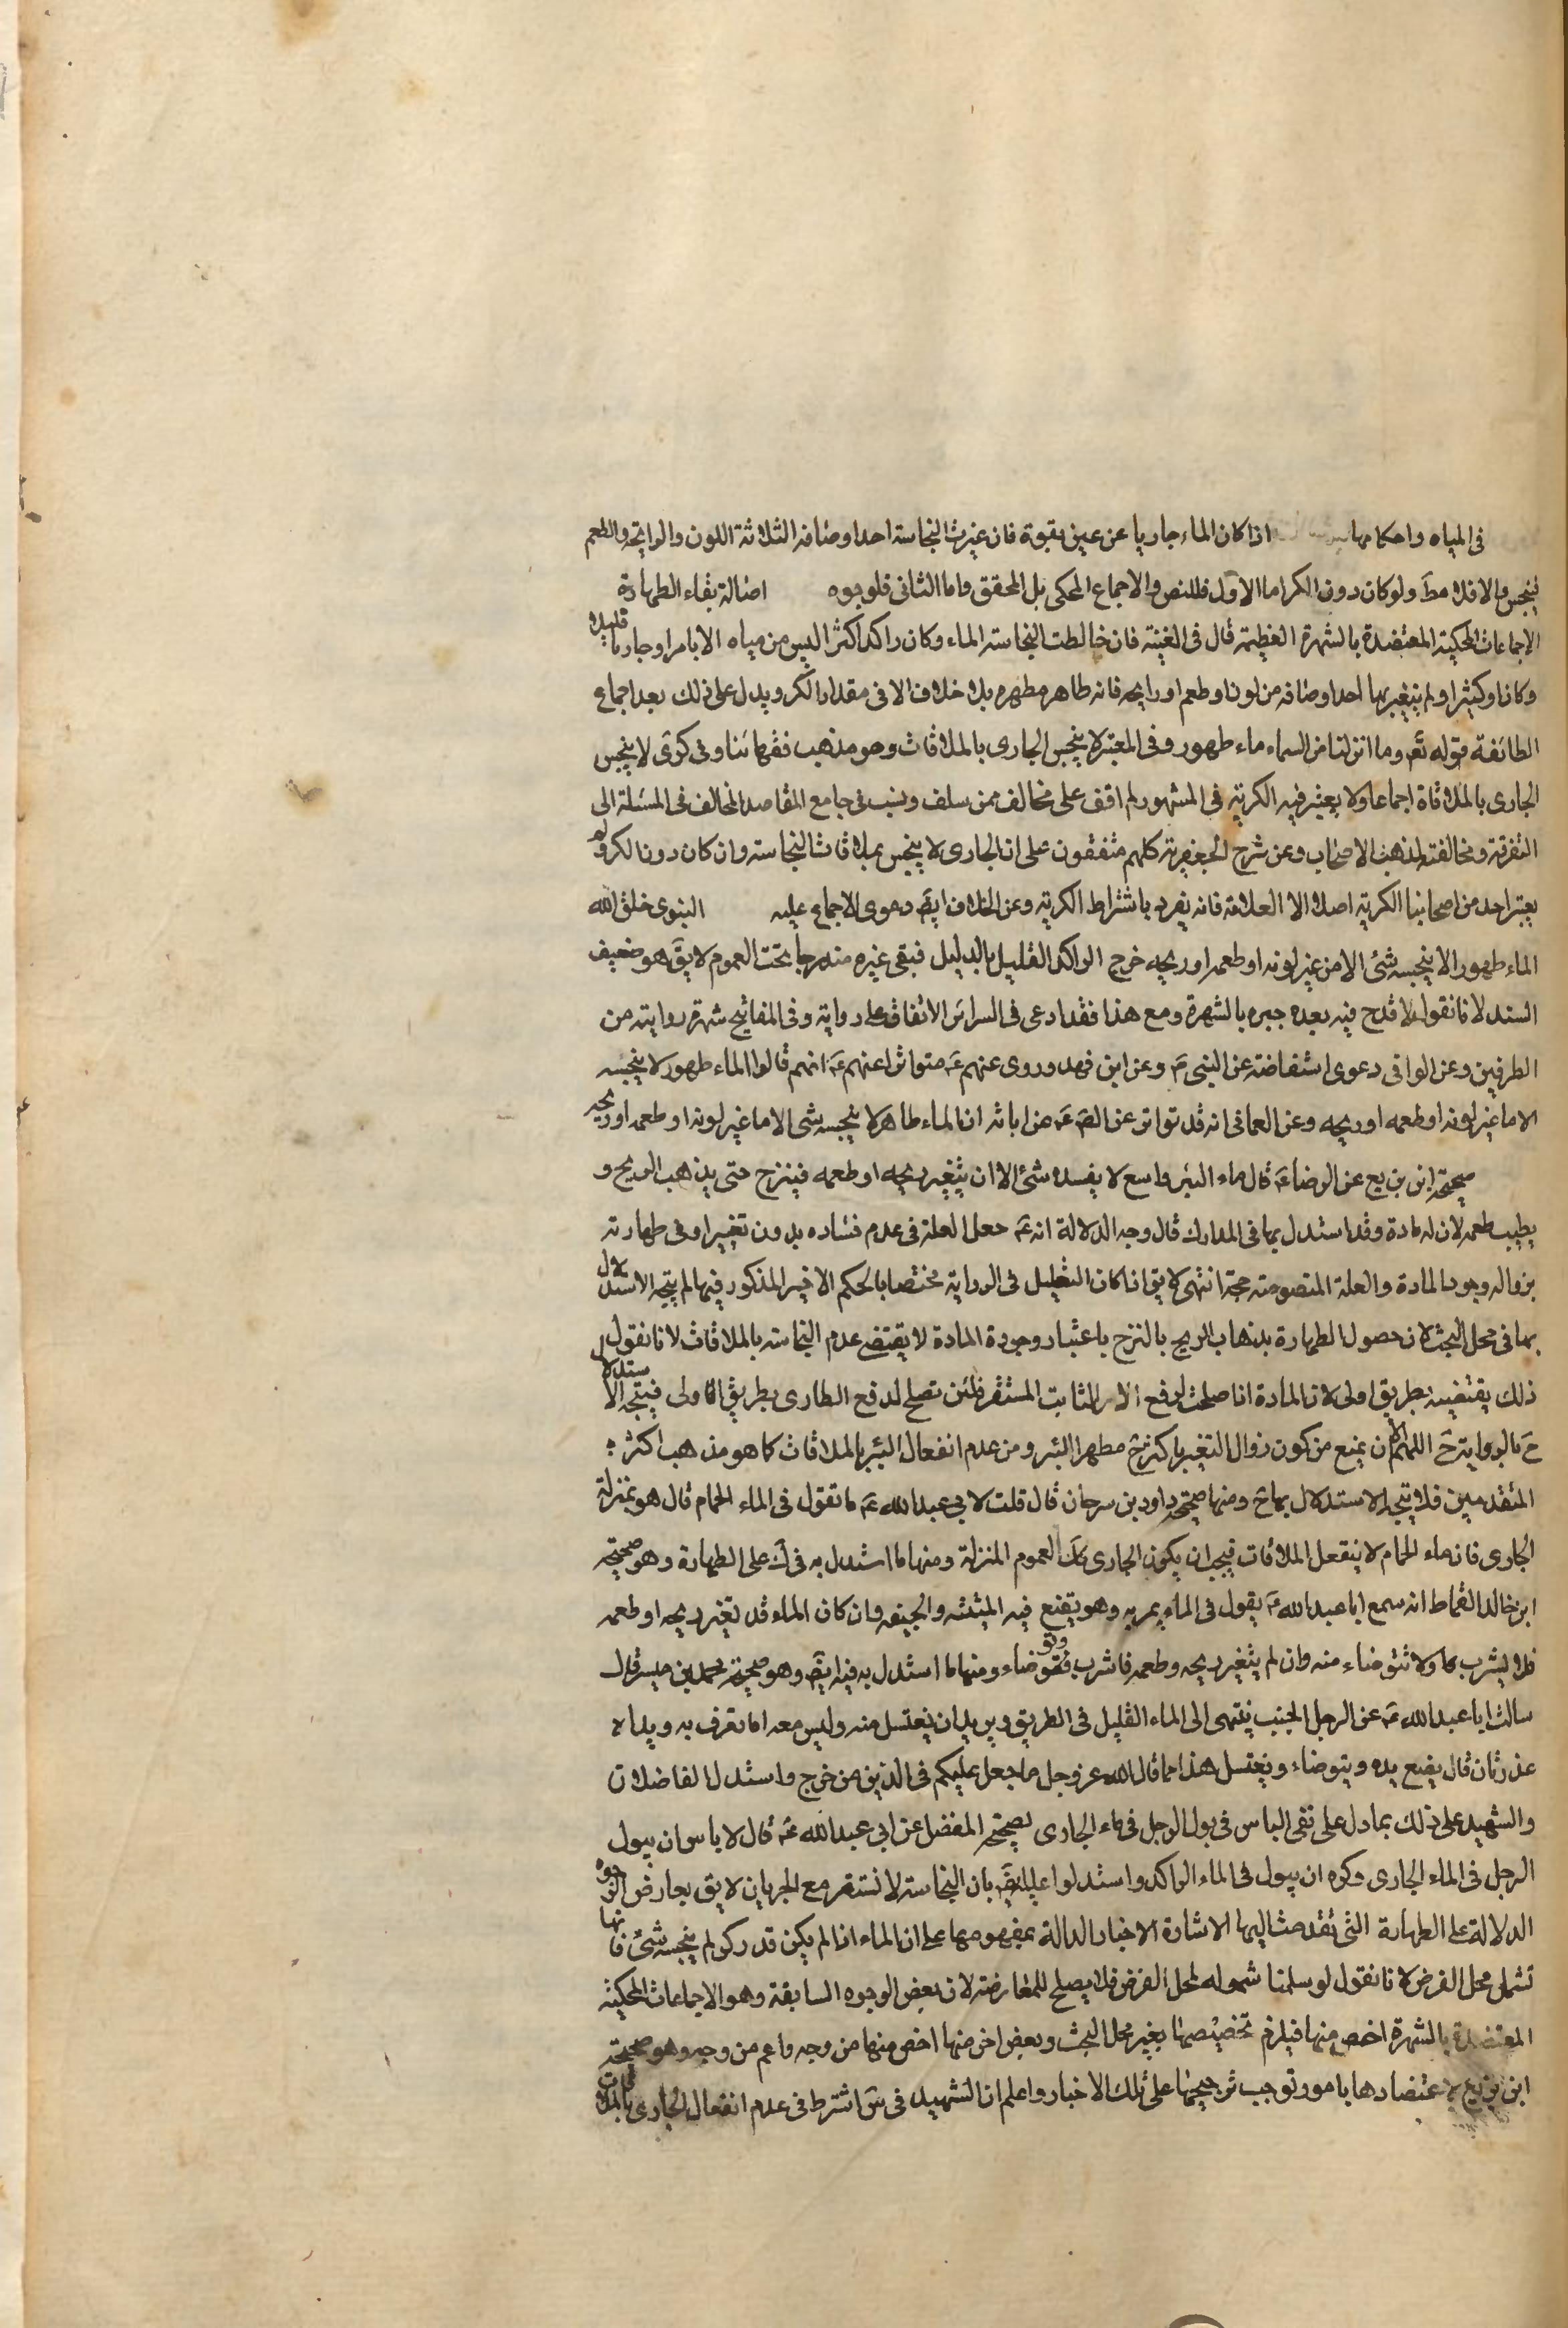 فى المياه واحكامها اذا كان الماء جاريا عن عين بقوة فان غيرت النجاسة احد اوصافه الثلاثة اللون والرايحة والطعم
ينجس والا فلا مط ولو كان دون الكر اما الاول فللنص والاجماع المحكى بل المحقق واما الثانى فلوجوه اصالة بقاء الطهارة
الاجماعات المحكية المعتضدة بالشهرة العظيمة قال فى الغنية فان خالطت النجاسة الماء وكان راكدا كثيرا ليس من مياه الابار او جاريا قليلا
وكان او كثيرا ولم يتغير بها احد اوصافه من لون او طعم او رايحة فانه طاهر مطهر بلا خلاف الا فى مقدار الكر ويدل على ذلك بعد اجماع
الطائفة قوله تع وما انزلنا من السماء ماء طهور وفى المعتبر لا ينجس الجارى بالملاقات وهو مذهب فقهائنا وفى كرى لا ينجس
الجارى بالملاقاة اجماعا ولا يعتبر فيه الكرية فى المشهور لم اقف على مخالف ممن سلف ونسب فى جامع المقاصد المخالف فى المسئلة الى
التفرقة ومخالفته لمذهب الاصحاب وعن شرح الجعفرية كلهم متفقون على ان الجارى لا ينجس بملاقات النجاسة وان كان دون الكر ولم
يعتبر احد من اصحابنا الكرية اصلا الا العلامة فانه يفرد باشتراط الكرية وعن الخلاف ايض دعوى الاجماع عليه النبوى خلق الله
الماء طهورا لا ينجسه شئ الا من غير لونه او طعمه او ريحه خرج الراكد القليل بالدليل فبقى غيره مندرجا تحت العموم لا يق هو ضعيف
السند لانا نقول لا قدح فيه بعد جبره بالشهرة ومع هذا فقد ادعى فى السرائر الاتفاق على رواية وفى المفاتيح شهرة روايته من
الطرفين وعن الوافى دعوى استفاضته عن النبى ص وعن ابن فهد وروى عنهم ع متواترا عنهم ع انهم قالوا الماء طهور لا ينجسه
الا ما غير لونه او طعمه او ريحه وعن العمانى انه قد تواتر عن الص ع عن ابائه ان الماء طاهر لا ينجسه شئ الا ما غير لونه او طعمه او ريحه
صحيحة ابن بزيع عن الرضا ع قال ماء البئر واسع لا يفسده شئ الا ان يتغير ريحه او طعمه فينزح حتى يذهب الريح و
يطيب طعمه لان له مادة وقد استدل بها فى المدارك قال وجه الدلالة انه ع جعل العلة فى عدم فساده بدون تغيير او فى طهارته
بزواله وجود المادة والعلة المنصوصة حجة انتهى لا يق اذا كان التعليل فى الرواية مختصا بالحكم الاخير المذكور فيها لم يتجه الاستدلال
بها فى محل البحث لان حصول الطهارة بذهاب الريح بالنزح باعتبار وجودة المادة لا يقتضى عدم النجاسة بالملاقات لانا نقول
ذلك يقتضيه بطريق اولى لان المادة اذا صلحت لرفع الامر الثابت المستقر فلئن تصلح لدفع الطارى بطريق الاولى فيتجه الاستدلال
ح بالرواية ح اللهم الا ان يمنع من كون زوال التغير بالنزح مطهر البئر ومن عدم انفعال البئر بالملاقات كما هو مذهب اكثر
المتقدمين فلا يتجه الاستدلال بها ح ومنها صحيحة داود بن سرحان قال قلت لابى عبد الله ع ما تقول فى الماء الحمام قال هو بمنزلة
الجارى فان ماء الحمام لا ينفعل الملاقات فيجب ان يكون الجارى كك لعموم المنزلة ومنها ما استدل به فى ك على الطهارة وهو صحيحة
ابن خالد القماط انه سمع ابا عبد الله ع يقول فى الماء يمر به وهو يقنع فيه الميتته والجيفه وان كان الماء قد تغير ريحه او طعمه
فلا يشرب كما ولا تتوضاء منه وان لم يتغير ريحه وطعمه فاشرب وتوضاء ومنها ما استدل به فيه ايض وهو صحيحة محمد بن ميسر قال
سالت ابا عبد الله ع عن الرجل الجنب ينتهى الى الماء القليل فى الطريق ويريد ان يغتسل منه وليس معه اما يغرف به ويداه
قذرتان قال يضع يده ويتوضاء ويغتسل هذا مما قال الله عز وجل ما جعل عليكم فى الدين من خرج واستدل الفاضلان
والشهيد على ذلك بما دل على نفى الباس فى بول الرجل فى ماء الجارى لصحيحة المفضل عن ابى عبد الله ع قال لا باس ان يبول
الرجل فى الماء الجارى وكره ان يبول فى الماء الراكد واستدلوا عليه ايض بان النجاسة لا تستقر مع الجريان لا يق يعارض الوجوه
الدلالة على الطهارة التى تقدمت اليها الاشارة الاخبار الدالة بمفهومها على ان الماء اذا لم يكن قدر كر لم ينجسه شئ فانها
تشمل محل الفرض لانا نقول لو سلمنا شموله لمحل الفرض فلا يصلح للمعارضة لان بعض الوجوه السابقة وهو الاجماعات المحكية
المعتضدة بالشهرة اخص منها فيلزم تخصيصها بغير محل البحث وبعض اخر منها اخص منهما من وجه واعم من وجه وهو صحيحة
ابن بزيع لاعتضادها بامور توجب ترجيحها على تلك الاخبار واعلم ان الشهيد فى س اشترط فى عدم انفعال الجارى بالملاقات